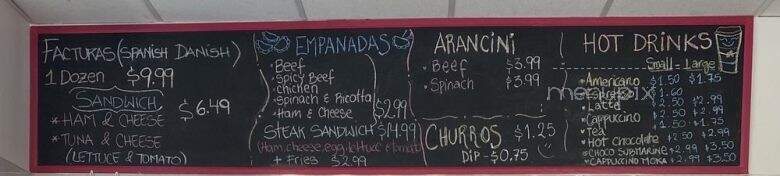 FACTURAS (SPANISH DANISH)
1 Dozen $9.99
SANDWICH $6.49
* HAM & CHEESE
* TUNA & CHEESE
(LETTUCE & TOMATO)
EMPANADAS
• Beef
• Spicy Beef
• Chicken
• Spinach & Ricotta
• Ham & Cheese $2.99
STEAK SANDWICH $14.99
(Ham, cheese, egg, lettuce & tomato)
+ Fries $2.99
ARANCINI
• Beef $3.99
• Spinach $3.99
CHURROS $1.25
DIP - $0.75
HOT DRINKS
Small - Large
* Americano $1.50 $1.75
$1.60
* Latte $2.50 $2.99
* Cappuccino $2.50 $2.99
* Tea $1.50 $1.75
* Hot Chocolate $2.50 $2.99
* CHOCO SUBMARINE $2.99 $3.50
* CAPPUCCINO MOKA $2.99 $3.50